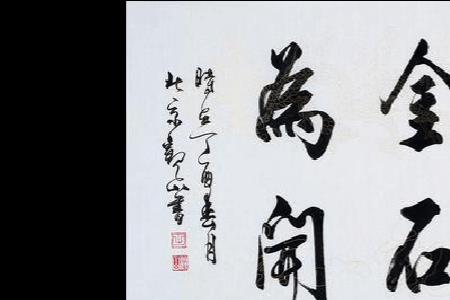 金石
為開
時在丁酉春月
北京觀山書